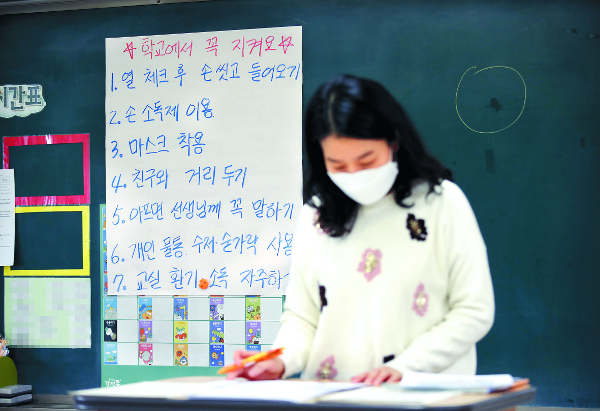 ☆학교에서 꼭 지켜요☆
1. 열 체크 후 손 씻고 들어오기
2. 손 소독제 이용
3. 마스크 착용
4. 친구와 거리 두기
5. 아프면 선생님께 꼭 말하기
6. 개인 물통, 수저·숟가락 사용
7. 교실 환기, 소독 자주하
시간표